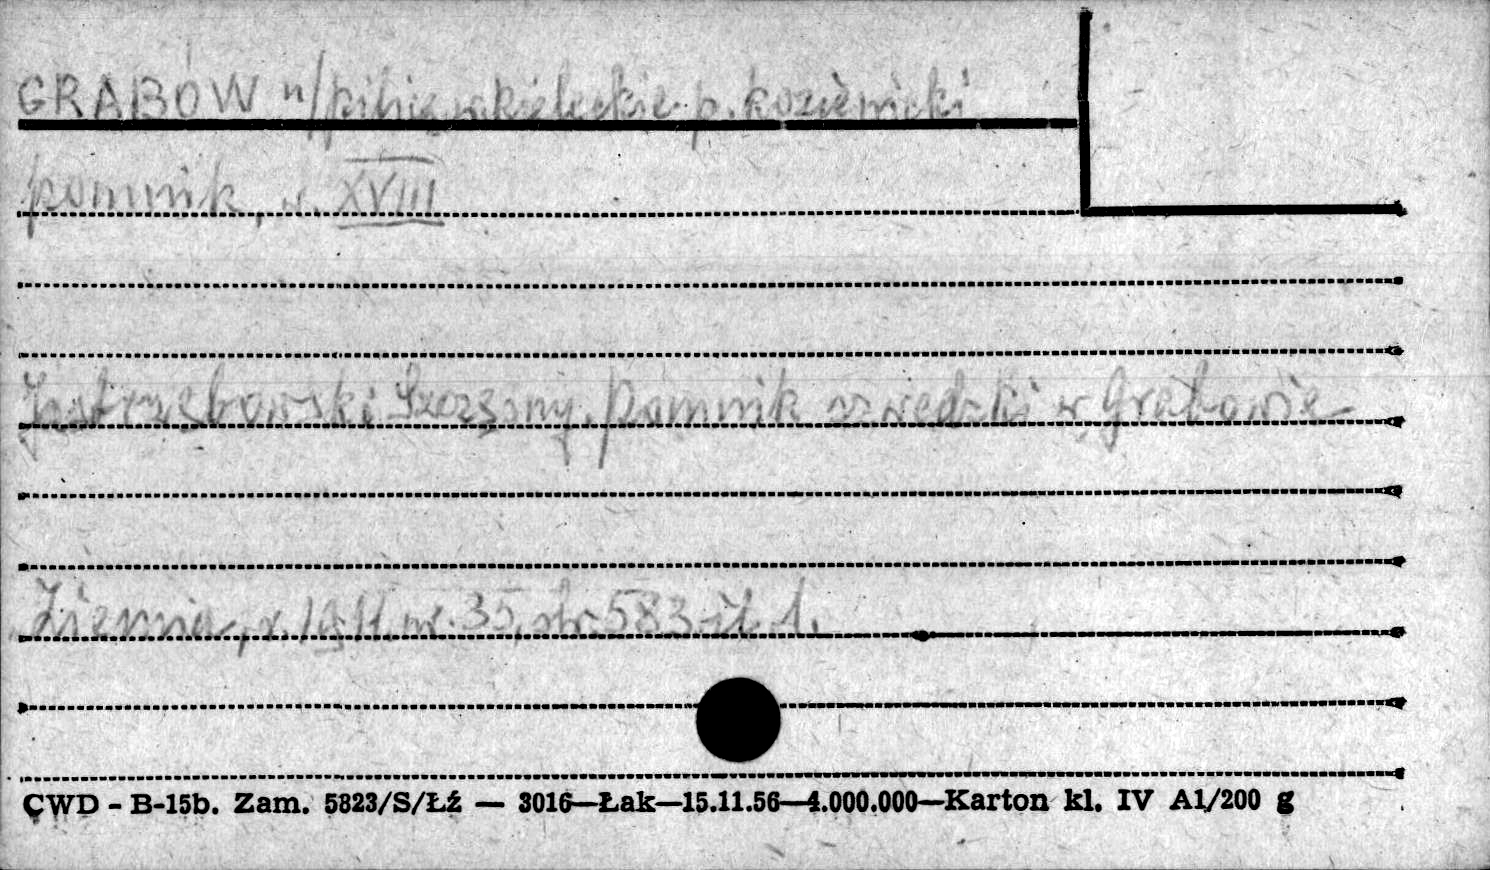 GRABÓW n/pilicą, kieleckie p. kozienicki
pomnik, w. XVIII
Jastrzębowski Szczęsny, Pomnik szwedzki w Grabowie
Ziemia, r. 1911. nr. 35, str. 583. il. 1.
CWD - B-15b. Zam. 5823/S/Łź — 3016—Łak—15.11.56—4.000.000—Karton kl. IV A1/200 g